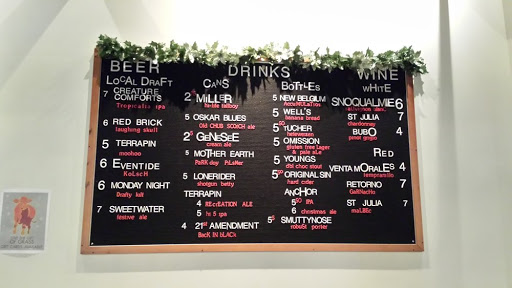 BEER
DRINKS
WINE
LoCAL DRAFT
7 CREATURE COMFORTS
Tropicalia ipa
6 RED BRICK
laughing skull
5 TERRAPIN
moohoo
6 EVENTIDE
KoLscH
6 MONDAY NIGHT
Drafty kilt
7 SWEETWATER
festive ale
CANS
2⁵⁰ MiLLER
hi-life tallboy
5 OSKAR BLUES
Old CHUB SCOtCH ale
2⁵⁰ GENESEE
cream ale
5 MOTHER EARTH
PaRK day PiLsNer
5 LONERIDER
shotgun betty
TERRAPIN
4 RECrEATION ALE
5 hi 5 ipa
4 21st AMENDMENT
Back IN bLACk
BoTtLES
5 NEW BELGIUM
AccuMULaTion
5 WELL'S
banana bread
5⁵⁰ TUCHER
hefeweizen
5 OMISSION
gluten free Lager
& pale aLe
5 YOUNGS
dbl choc stout
5⁵⁰ ORIGINAL SIN
hard cider
ANCHOR
5⁵⁰ IPA
6 christmas ale
5⁵⁰ SMUTTYNOSE
robuSt porter
wHITE
SNOQUALMIE 6
ST JULIA 7
chardonnay
BUBO 4
pinot grigio
RED
VENTA MORALES 4
tempranillo
RETORNO 7
GaRNacHo
ST JULIA 7
maLBEc